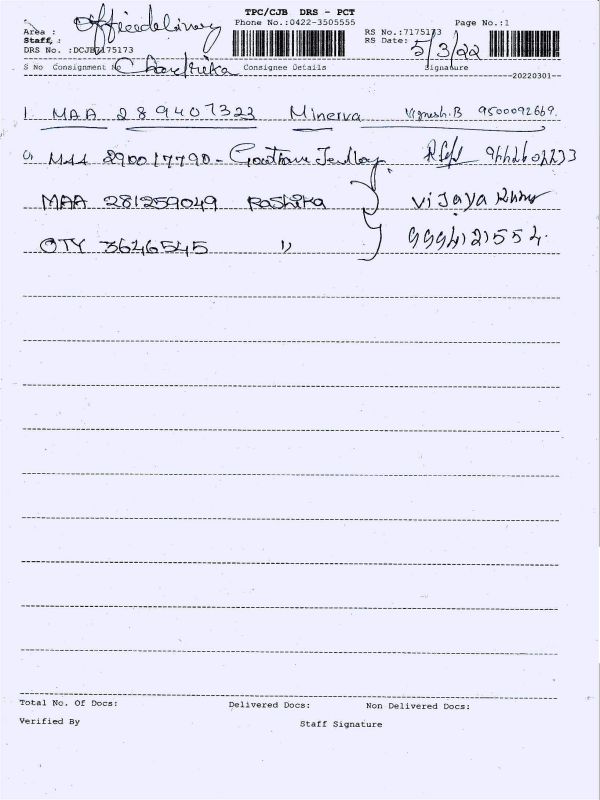 TPC/CJB DRS - PCT
Area : Officedelivery Phone No.:0422-3505555 Page No.:1
Staff, : RS No.:7175173
RS Date: 5/3/22
DRS No. :DCJB7175173
S No Consignment No Chandrika Consignee Details Signature
20220301
1. MAA 289407323 Minerva Vignesh.B 9500092669.
MAA 890017790 - Goutham
MAA 281259049 Rashika Vijaya Kumar
QTY 3646545 " 9994121554.
Total No. Of Docs: Delivered Docs: Non Delivered Docs:
Verified By Staff Signature